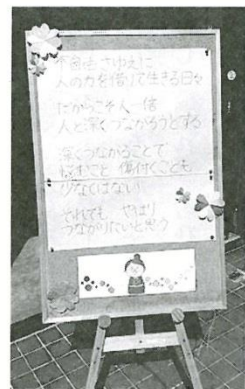 不自由さゆえに
人の力を借りて生きる日々
だからこそ人一倍
人と深くつながろうとする
深くつながることで
悩むこと 傷付くことも
少なくはない
それでも やはり
つながりたいと思う